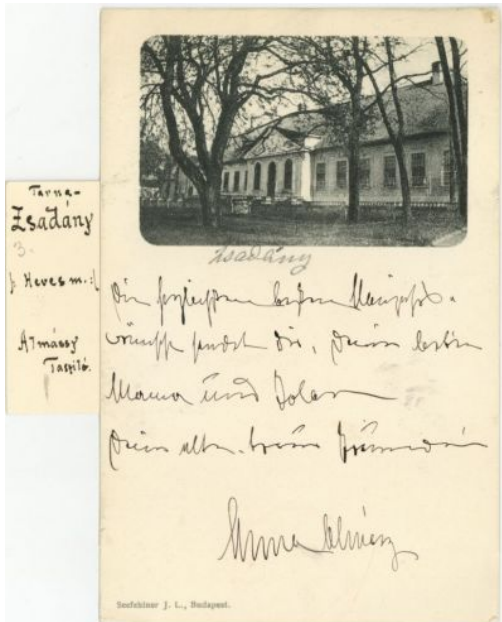 Tarna-
Zsadány
3.
Heves m.
Almássy
Taszilo.
Zsadány
Die herzlichsten besten Neujahrs-
wünsche sendet dir, deiner lieben
Mama und Jolan
deine alte, treue Freundin
Anna Almássy
Seefehlner J. L., Budapest.